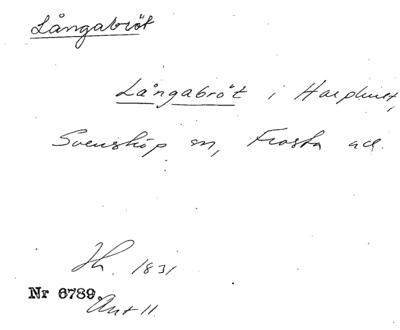 Långabröt
Långabröt i Harphult,
Svensköp sn, Frosta hd.
1831
Nr 6789.
Ant 11.